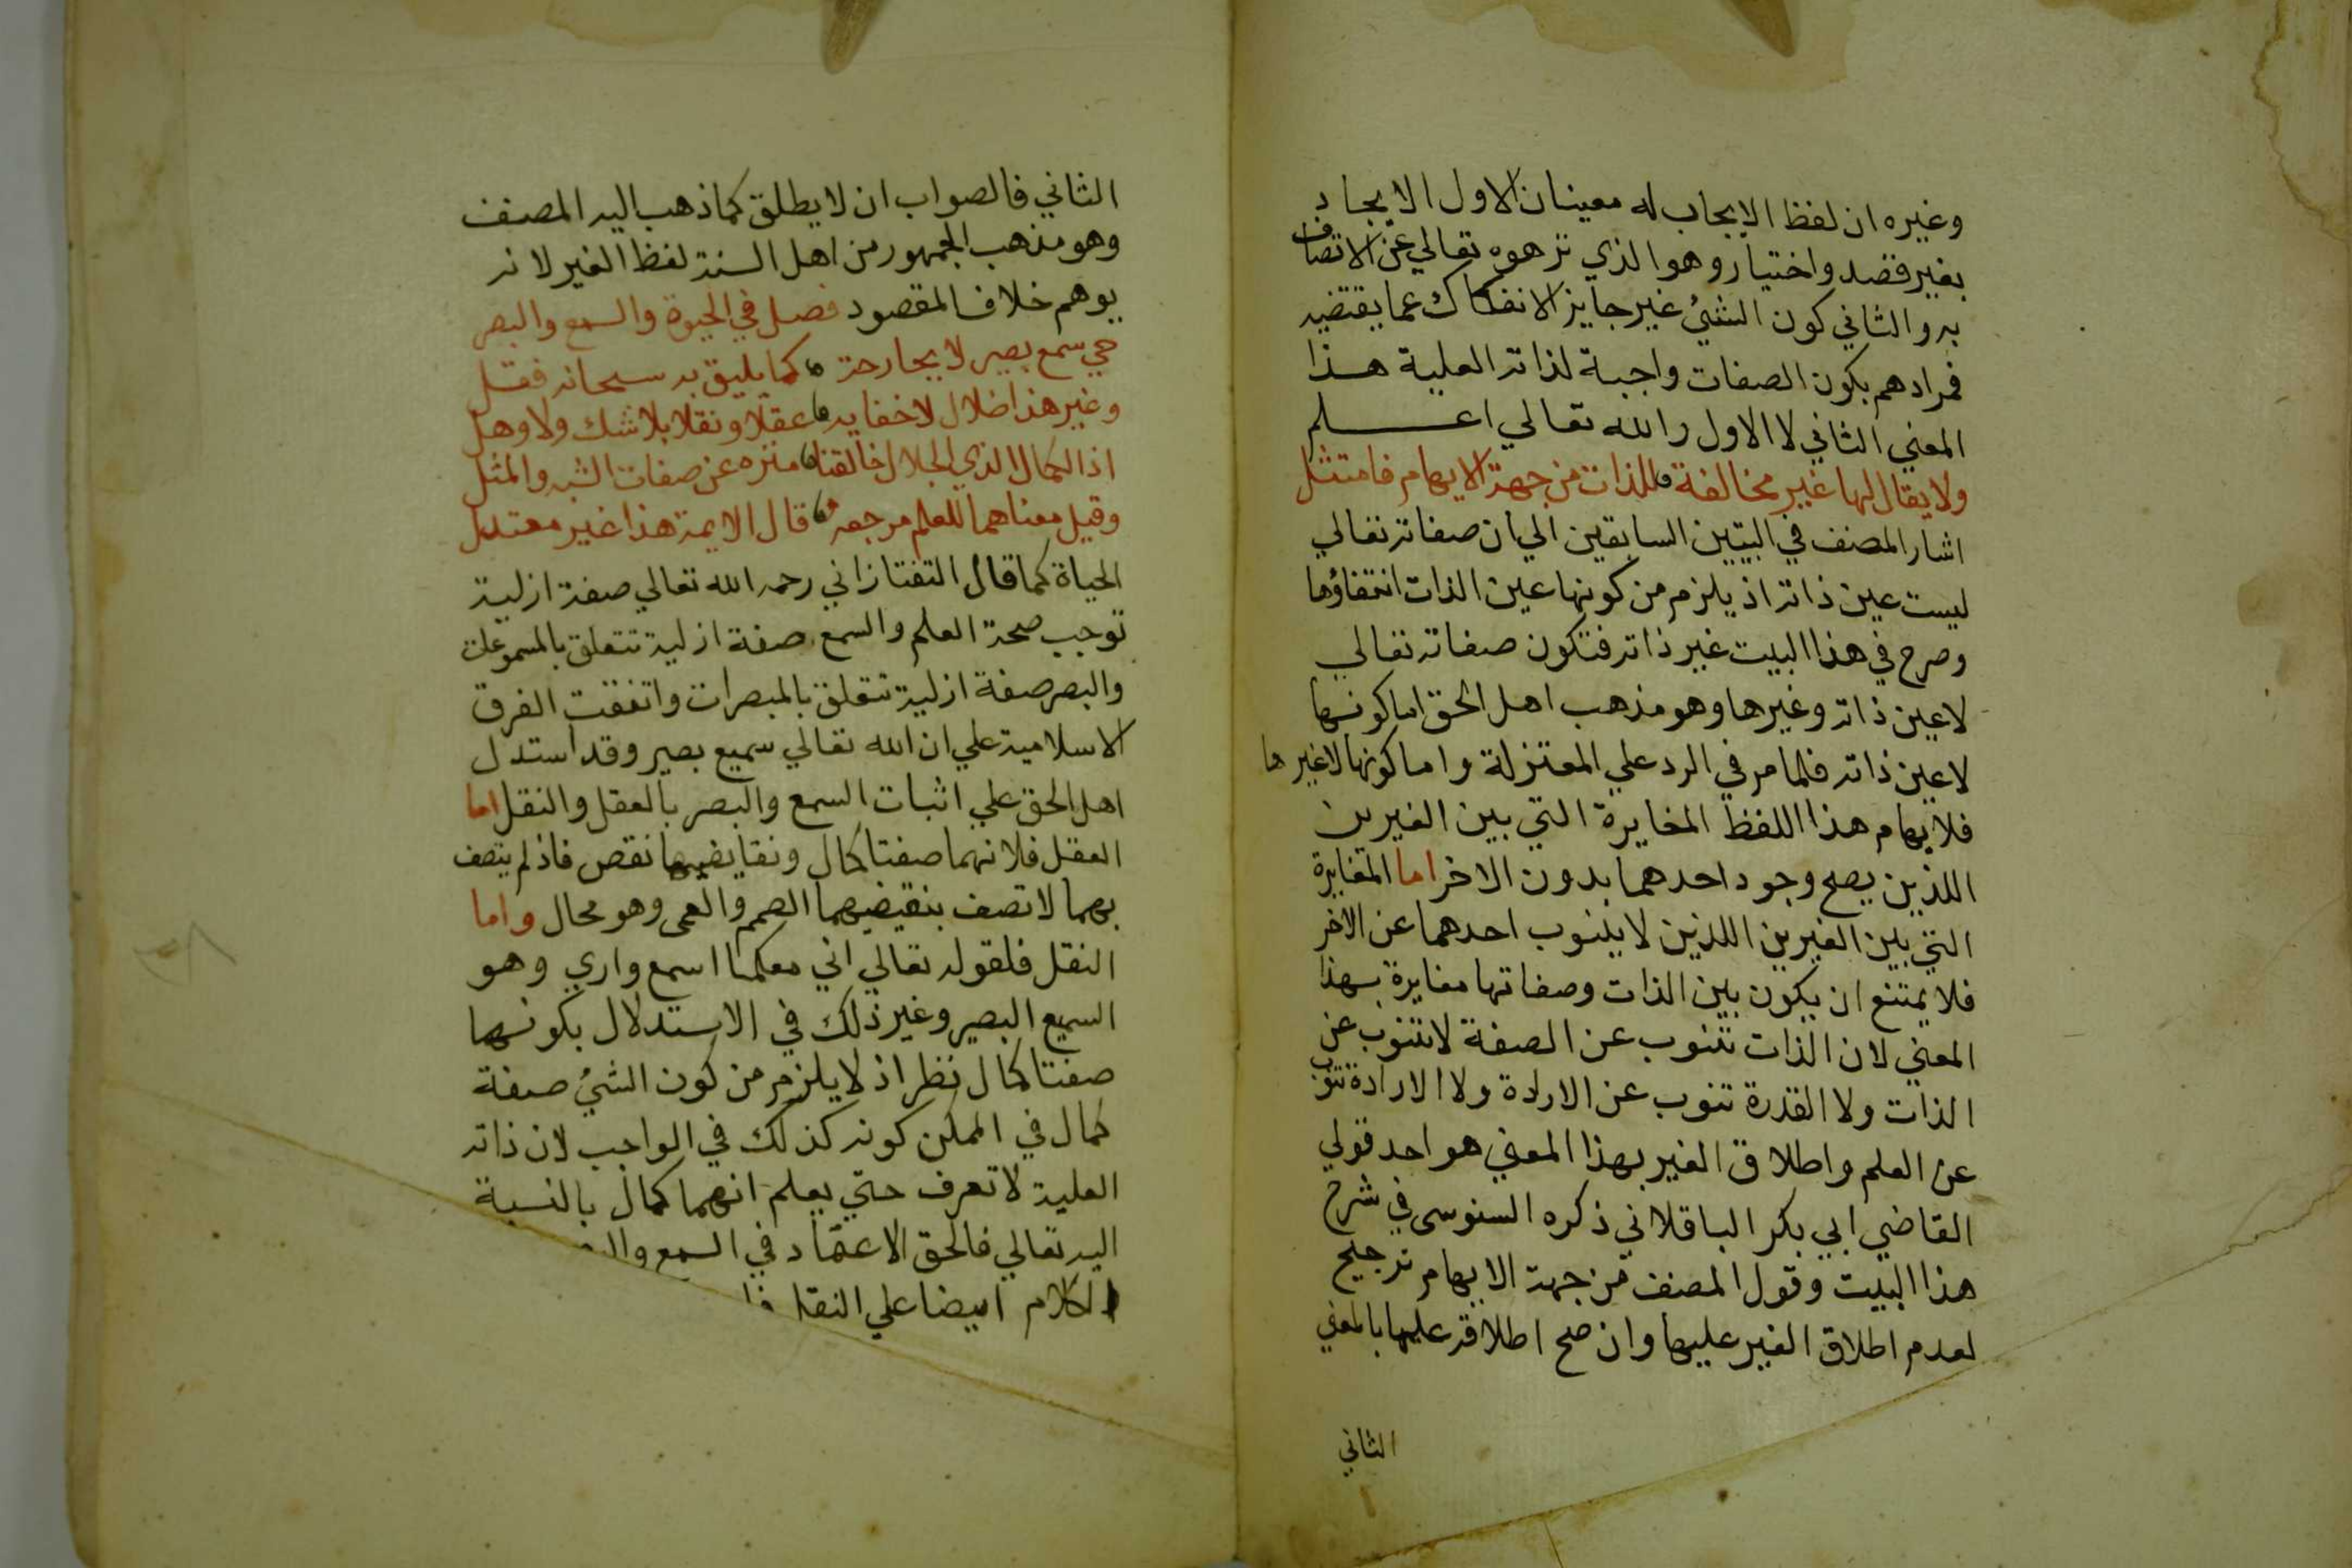 وغيره ان لفظ الايجاب له معينان الاول الايجاد
بغير قصد واختيار وهو الذي نزهوه تعالي عن الاتصاف
به والثاني كون الشئ غير جايز الانفكاك عما يقتضيه
فمرادهم بكون الصفات واجبة لذاته العلية هذا
المعني الثاني لا الاول والله تعالي اعلم
ولا يقال لها غير مخالفة للذات من جهة الايهام فامتثل
اشار المصنف في البيتين السابقين الي ان صفاته تعالي
ليست عين ذاته اذ يلزم من كونها عين الذات انتفاؤها
وصرح في هذا البيت غير ذاته فتكون صفاته تعالي
لاعين ذاته وغيرها وهو مذهب اهل الحق اما كونها
لاعين ذاته فلما مر في الرد علي المعتزلة واما كونها لاغيرها
فلايهام هذا اللفظ المغايرة التي بين الغيرين
اللذين يصح وجود احدهما بدون الاخر اما المغايرة
التي بين الغيرين اللذين لا ينوب احدهما عن الاخر
فلا يمتنع ان يكون بين الذات وصفاتها مغايرة بهذا
المعني لان الذات تنوب عن الصفة لا تنوب عن
الذات ولا القدرة تنوب عن الارادة ولا الارادة تنوب
عن العلم واطلاق الغير بهذا المعني هو احد قولي
القاضي ابي بكر الباقلاني ذكره السنوسى في شرح
هذا البيت وقول المصنف من جهة الايهام ترجيح
لعدم اطلاق الغير عليها وان صح اطلاقه عليها بالمعني
الثاني
الثاني فالصواب ان لا يطلق كما ذهب اليه المصنف
وهو مذهب الجمهور من اهل السنة لفظ الغير لانه
يوهم خلاف المقصود فصل في الحيوة والسمع والبصر
حي سمع بصير لا بجارحة كما يليق به سبحانه فقل
وغير هذا ضلال لا خفا به عقلا ونقلا بلا شك ولا وهل
اذ الكمال لذي الجلال خالقنا منزه عن صفات الشبه والمثل
وقيل معناهما للعلم مرجعه قال الايمة هذا غير معتدل
الحياة كما قال التفتازاني رحمه الله تعالي صفة ازلية
توجب صحة العلم والسمع صفة ازلية تتعلق بالمسموعات
والبصر صفة ازلية تتعلق بالمبصرات واتفقت الفرق
الاسلامية علي ان الله تعالي سميع بصير وقد استدل
اهل الحق علي اثبات السمع والبصر بالعقل والنقل اما
العقل فلانهما صفتا كمال ونقايضهما نقص فاذ لم يتصف
بهما لاتصف بنقيضيهما الصمم والعمى وهو محال واما
النقل فلقوله تعالي اني معكما اسمع واري وهو
السميع البصير وغير ذلك في الاستدلال بكونهما
صفتا كمال نظر اذ لا يلزم من كون الشئ صفة
كمال في الممكن كونه كذلك في الواجب لان ذاته
العلية لا تعرف حتي يعلم انهما كمال بالنسبة
اليه تعالي فالحق الاعتماد في السمع
والكلام ايضا علي النقل